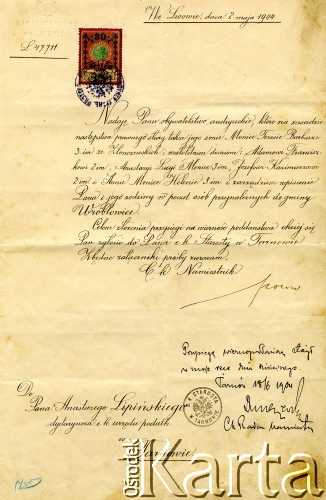 We Lwowie, dnia 2 maja 1904
L 47711
Nadaję Panu obywatelstwo austryackie, które na zasadzie
następstwa prawnego służy także jego żonie Monice Teresie Barbarze
3 im. ze i małoletnim dzieciom: Adamowi Francisz-
kowi 2 im., Anastazyi Lucyi Maryi 3 im., Józefowi Kazimierzowi
2 im. i Annie Monice Helenie 3 im. i zarządzam wpisanie
Pana i jego rodziny w poczet osób przynależnych do gminy
Wróblowice.
Celem złożenia przysięgi na wierność poddańczą zechcej się
Pan zgłosić do Pana c. k. Starosty w Tarnowie.
Zbędne załączniki prośby zwracam.
C. k. Namiestnik
Przysięgę wiernopoddańczą złożył
w moje ręce dnia dzisiejszego
Tarnów 18/6 1904
C. k. Radca
Do
Pana Anastazego Lipińskiego
c. k. urzędu podatk.
w
Tarnowie
C. K. STAROSTA
W TARNOWIE
ośrodek
Karta